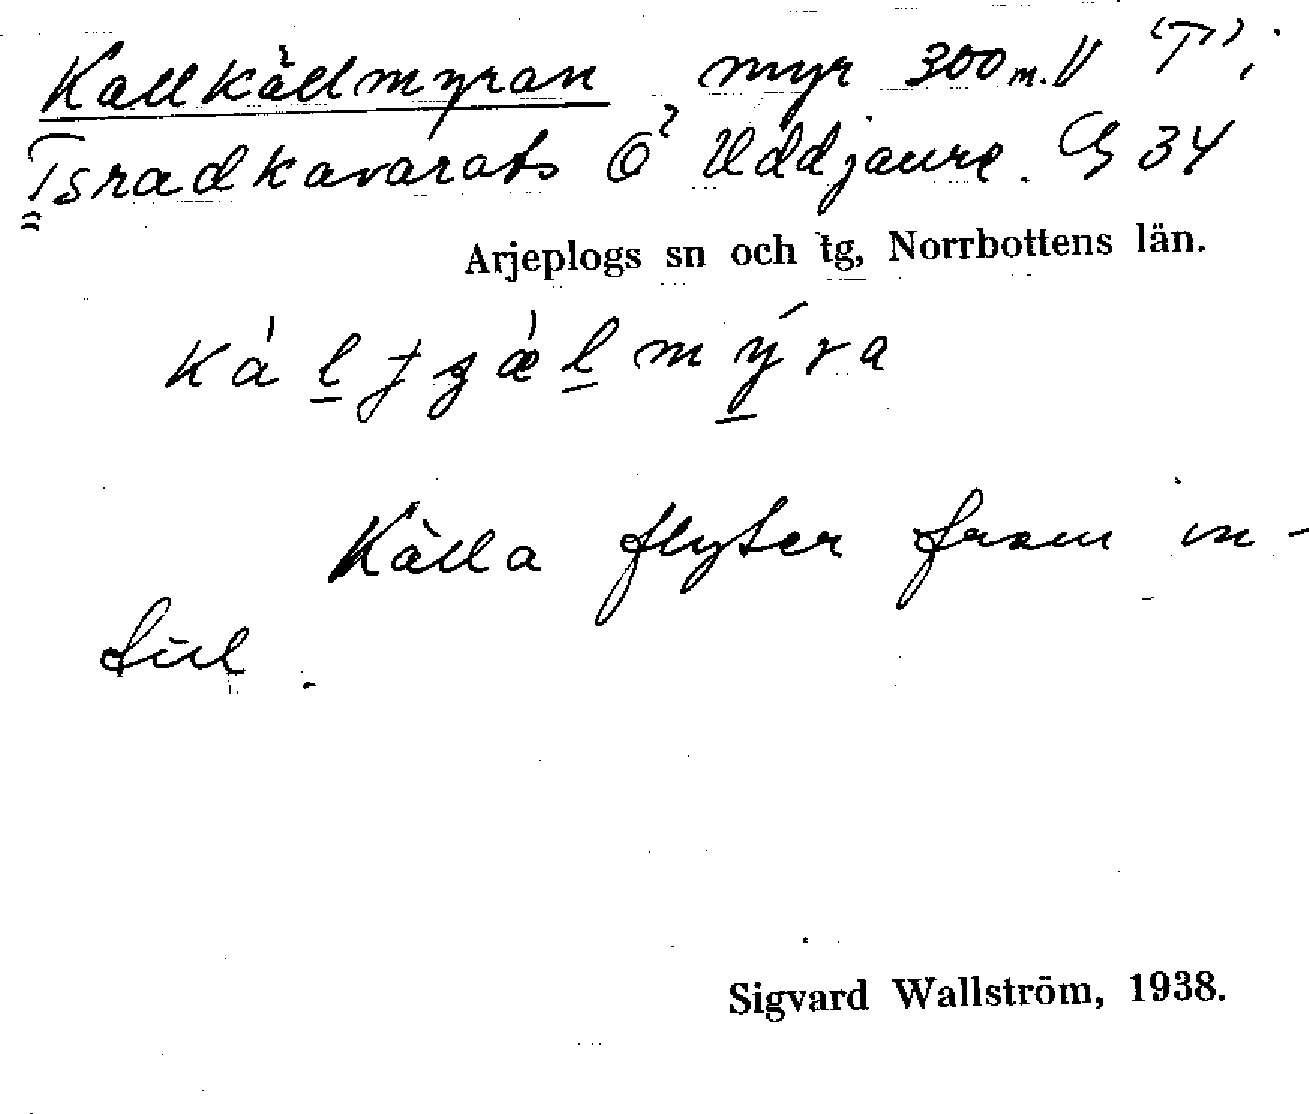 Kallkällmyran myr 300 m. V "T";
Tsradkavarats Ö Uddjaure. G 34
Arjeplogs sn och tg, Norrbottens län.
Källa flyter fram in-
till.
Sigvard Wallström, 1938.